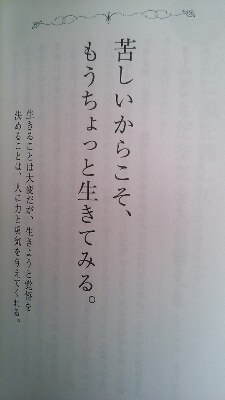 苦しいからこそ、
もうちょっと生きてみる。
生きることは大変だが、生きようと覚悟を
決めることは、人に力と勇気を与えてくれる。